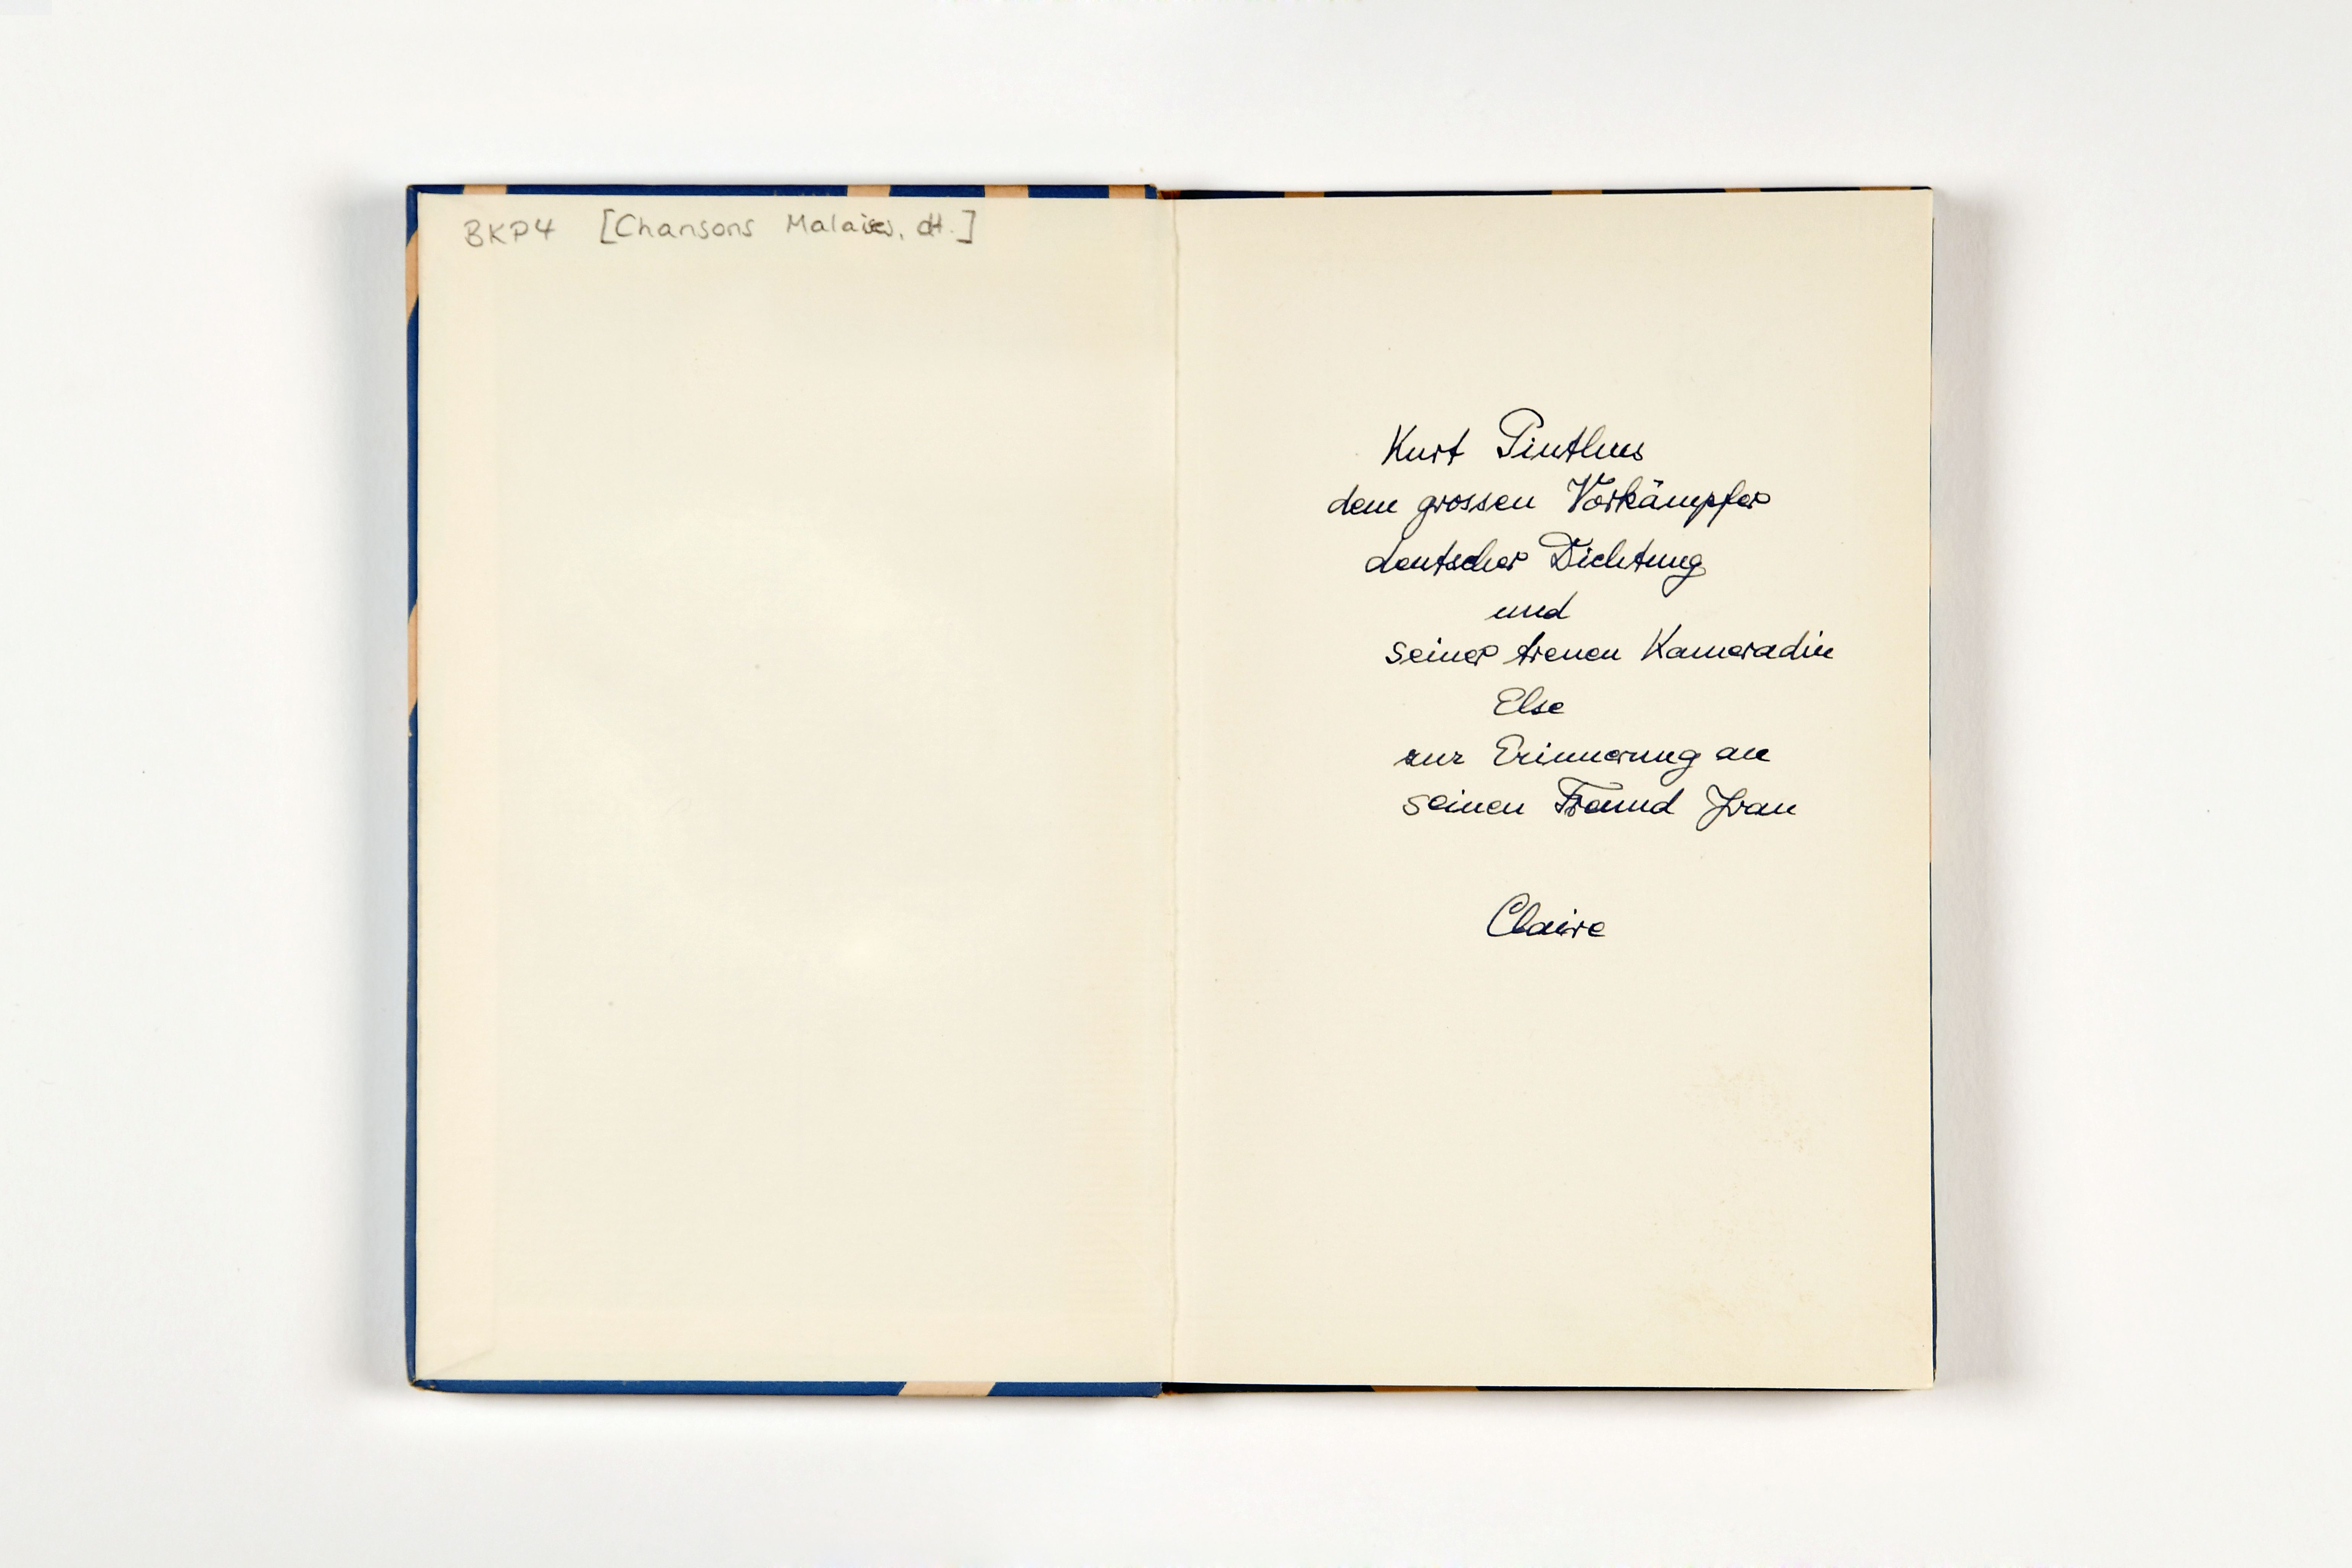 BKP4 [Chansons Malaises, dt.]
Kurt Pinthus
dem grossen Vorkämpfer
deutscher Dichtung
und
seiner treuen Kameradin
Else
zur Erinnerung an
seinen Freund Ivan
Claire